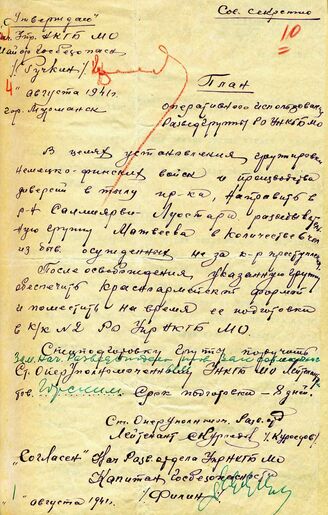 Сов. секретно
"Утверждаю"
Нач. Упр. НКГБ МО
Майор Госбезопасн.
/Ручкин/
10
"4" августа 1941 г.
гор. Мурманск
План
оперативного использован.
Разведгруппы РО УНКГБ МО
В целях установления группировк.
немецко-финских войск и производства
диверсий в тылу пр-ка, направить в
р-н Салмиярви-Луостари
группу Матвеева в количестве
из быв. осужденных не за к-р преступл.
После освобождения, указанную группу
обеспечить красноармейской формой
и поместить на время ее подготовки
в к/к №2 РО УпрНКГБ МО
Спецподготовку группы поручить
Зам. нач.
Ст. Оперуполномоченному УНКГБ МО Лейтенанту
Горским. Срок подготовки - 8 дней.
Ст. Оперуполном. Развед.
Лейтенант /Курсеев/
"Согласен" Нач. Развед. отдела УпрНКГБ МО
Капитан Госбезопасности
/Филин/
" " августа 1941 г.